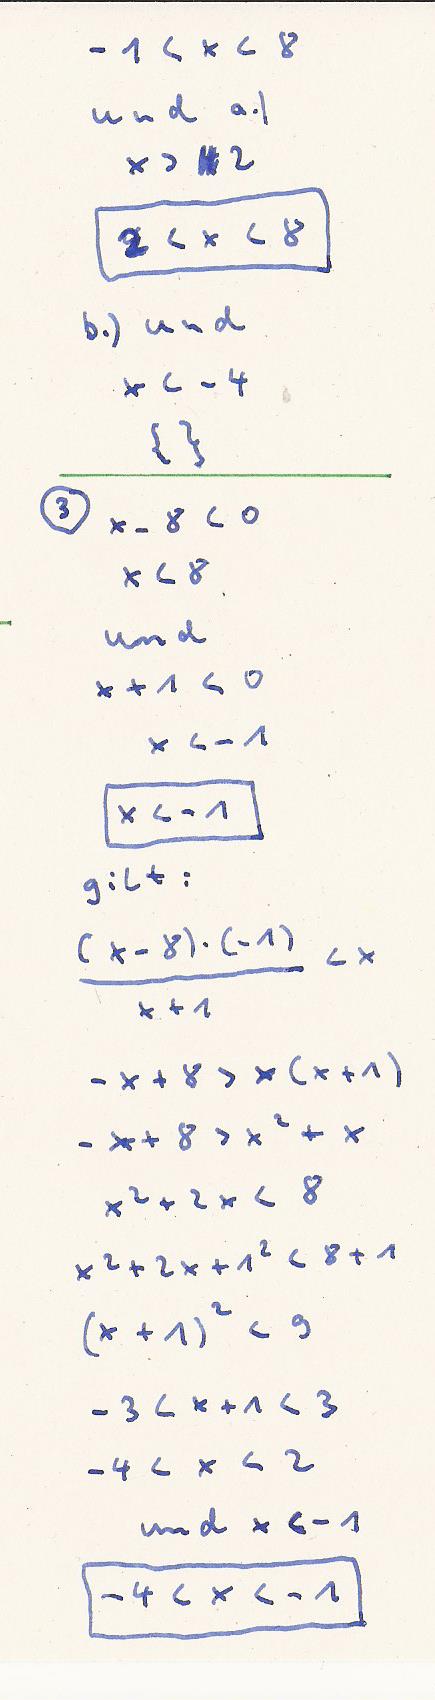 -1 < x < 8
und a.)
x > 2
2 < x < 8
b.) und
x < -4
{ }
3 x - 8 < 0
x < 8
und
x + 1 < 0
x < -1
x < -1
gilt:
(x-8)·(-1) / x+1 < x
-x + 8 > x(x+1)
-x + 8 > x² + x
x² + 2x < 8
x² + 2x + 1² < 8 + 1
(x + 1)² < 9
-3 < x + 1 < 3
-4 < x < 2
und x < -1
-4 < x < -1